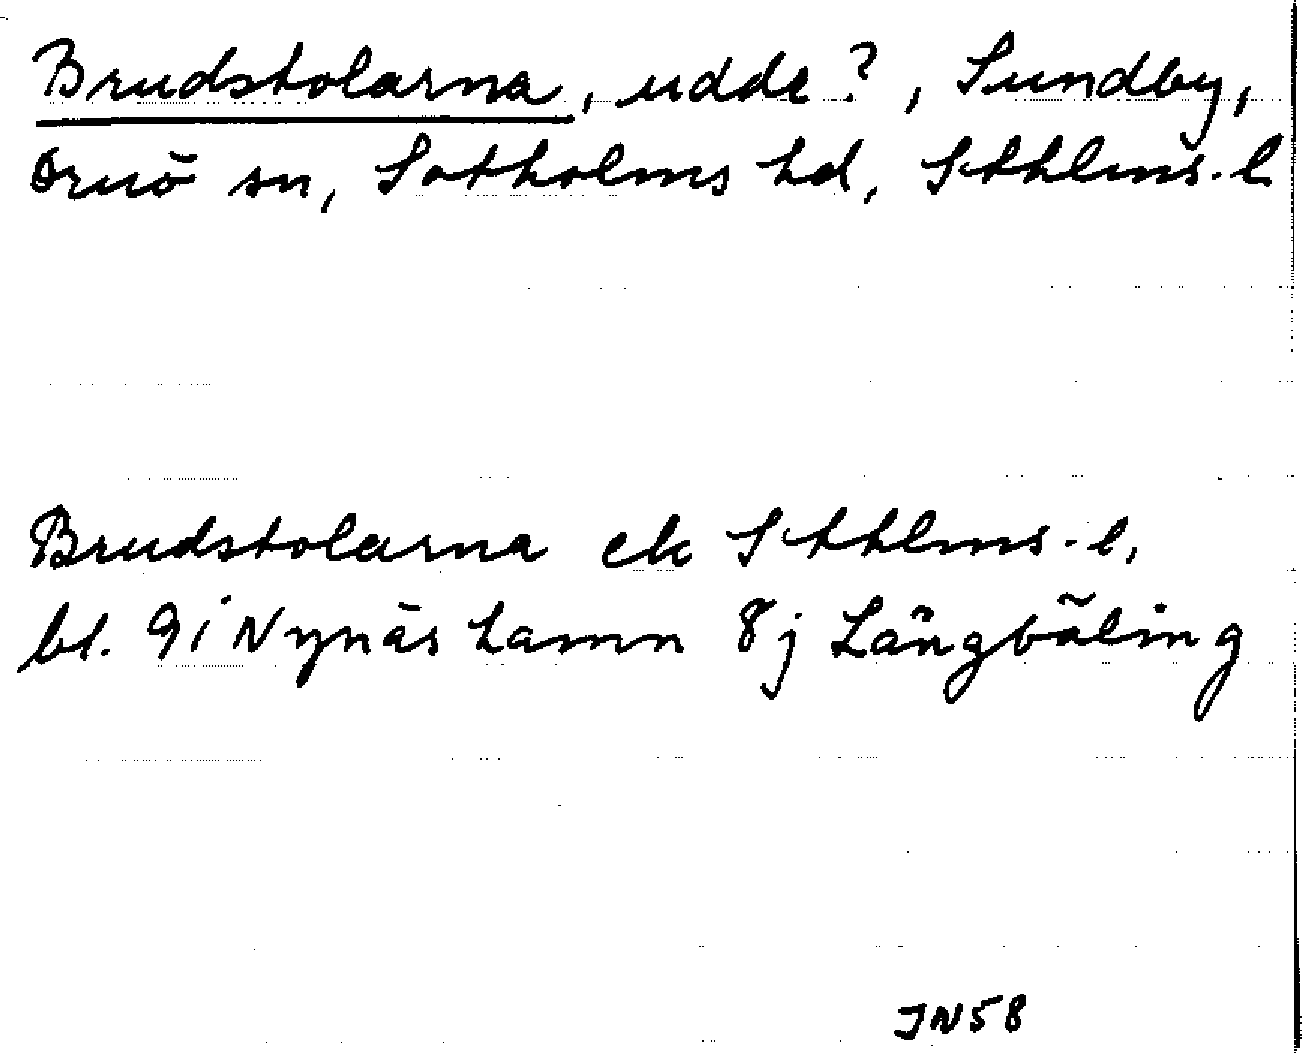 Brudstolarna, udde?, Sundby,
Ornö sn, Sotholms hd, Sthlms. l
Brudstolarna ek Sthlms-l,
bl. 9i Nynäshamn 8j Långbäling
JN58